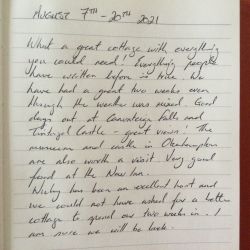 AUGUST 7TH - 20TH 2021
What a great cottage with everything
you could need! Everything people
have written before is true. We
have had a great two weeks even
though the weather was mixed. Good
days out at Canonteign Falls and
Tintagel Castle - great views! The
museum and castle in Okehampton
are also worth a visit. Very good
food at the New Inn.
Nicky has been an excellent host and
we could not have asked for a better
cottage to spend our two weeks in. I
am sure we will be back.